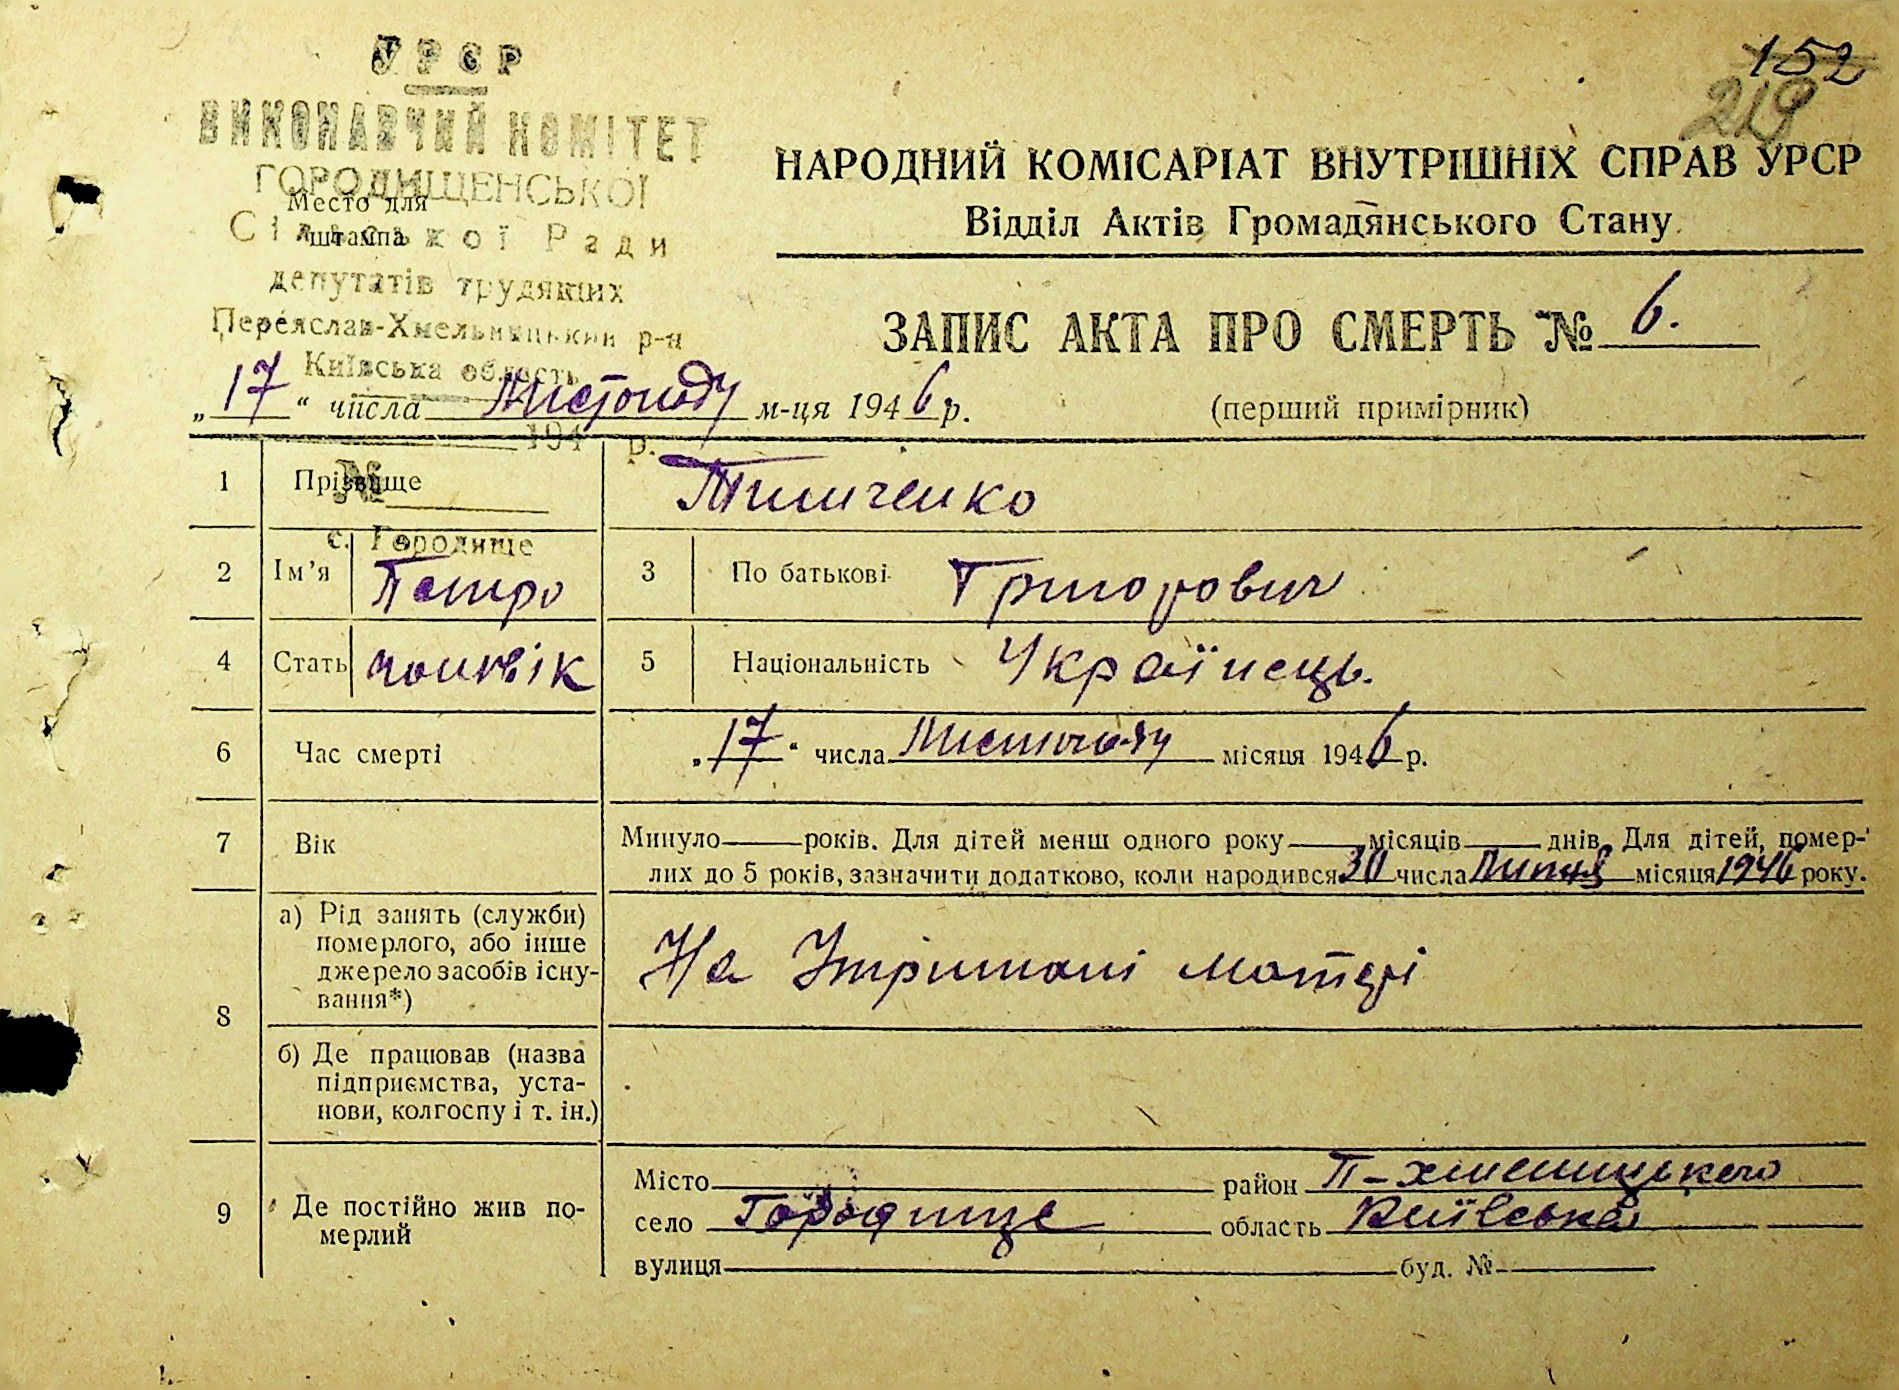 УРСР
ВИКОНАВЧИЙ КОМІТЕТ
ГОРОДИЩЕНСЬКОЇ
Сільської Ради
депутатів трудящих
Переяслав-Хмельницький р-н
Київська область
194 р.
№
с. Городище
Место для
штампа
152
219
НАРОДНИЙ КОМІСАРІАТ ВНУТРІШНІХ СПРАВ УРСР
Відділ Актів Громадянського Стану
ЗАПИС АКТА ПРО СМЕРТЬ № 6.
„17“ числа Листопаду м-ця 1946 р.
(перший примірник)
1 Прізвище Тимченко
2 Ім’я Петро 3 По батькові Григорович
4 Стать чоловік 5 Національність Українець.
6 Час смерті „17“ числа Листопаду місяця 1946 р.
7 Вік Минуло років. Для дітей менш одного року місяців днів. Для дітей, помер-
лих до 5 років, зазначити додатково, коли народився 30 числа Липня місяця 1946 року.
8 а) Рід занять (служби)
померлого, або інше
джерело засобів існу-
вання*)
На Утримані матері
б) Де працював (назва
підприємства, уста-
нови, колгоспу і т. ін.)
9 Де постійно жив по-
мерлий
Місто район П-Хмельницького
село Городище область Київська
вулиця буд. №